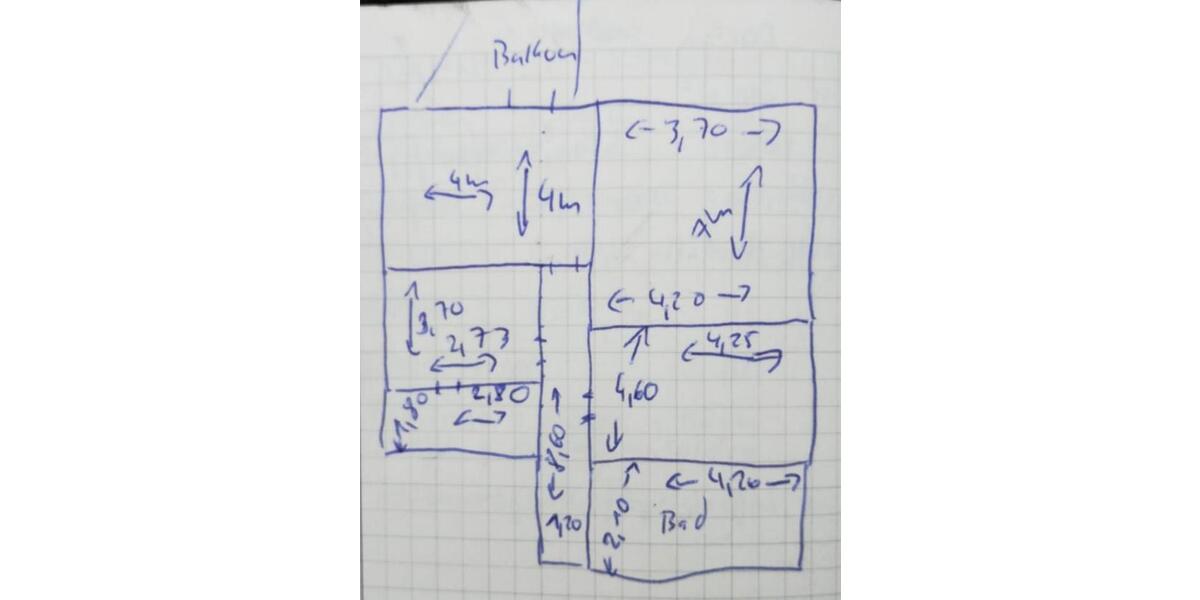 Balkon
3,70
4m
4m
4,20
3,70
2,73
4,25
4,60
1,80
2,80
8,60
1,20
4,20
2,10
Bad